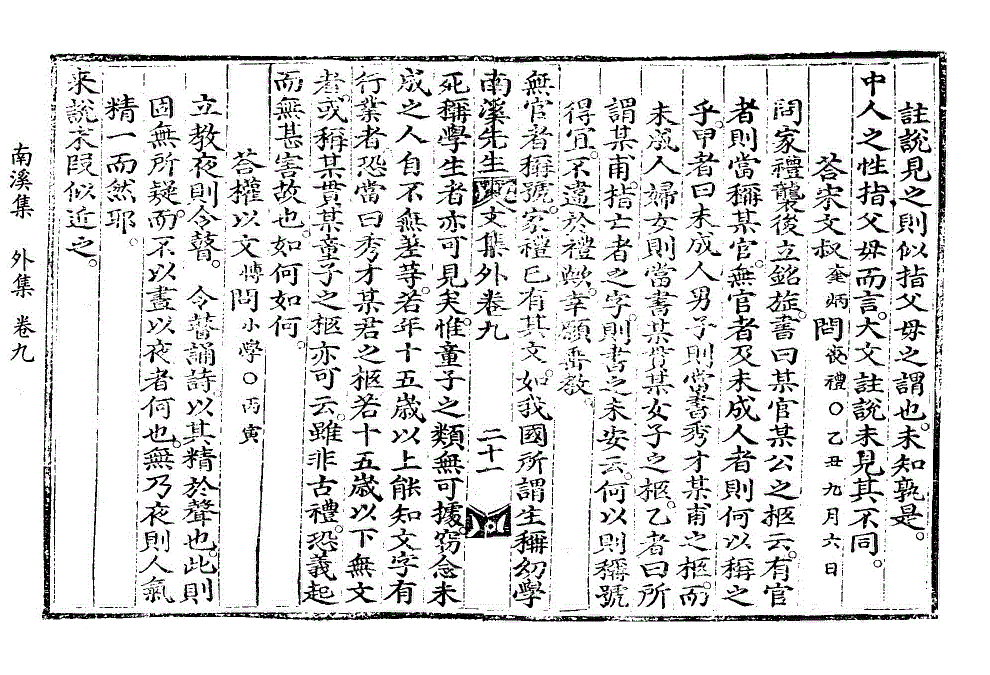 註說見之則似指父母之謂也。未知孰是。
中人之性指父母而言。大文註說未見其不同。
答宋文叔 奎炳 問 喪禮○乙丑九月六日
問家禮襲後立銘旌。書曰某官某公之柩云。有官
者則當稱某官。無官者及未成人者則何以稱之
乎。甲者曰未成人男子則當書秀才某甫之柩。而
未成人婦女則當書某貫某女子之柩。乙者曰所
謂某甫。指亡者之字。則書之未安云。何以則稱號
得宜。不違於禮歟。幸願垂敎。
無官者稱號。家禮已有其文。如我國所謂生稱幼學
南溪先生文集外卷九 二十一
死稱學生者亦可見矣。惟童子之類無可據。竊念未
成之人自不無差等。若年十五歲以上能知文字有
行業者。恐當曰秀才某君之柩。若十五歲以下無文
者。或稱某貫某童子之柩亦可云。雖非古禮。恐義起
而無甚害故也。如何如何。
答權以文 愽 問 小學○丙寅
立敎夜則令瞽。 令瞽誦詩。以其精於聲也。此則
固無所疑。而不以晝以夜者何也。無乃夜則人氣
精一而然耶。
來說末段似近之。
南溪集 外集 卷九